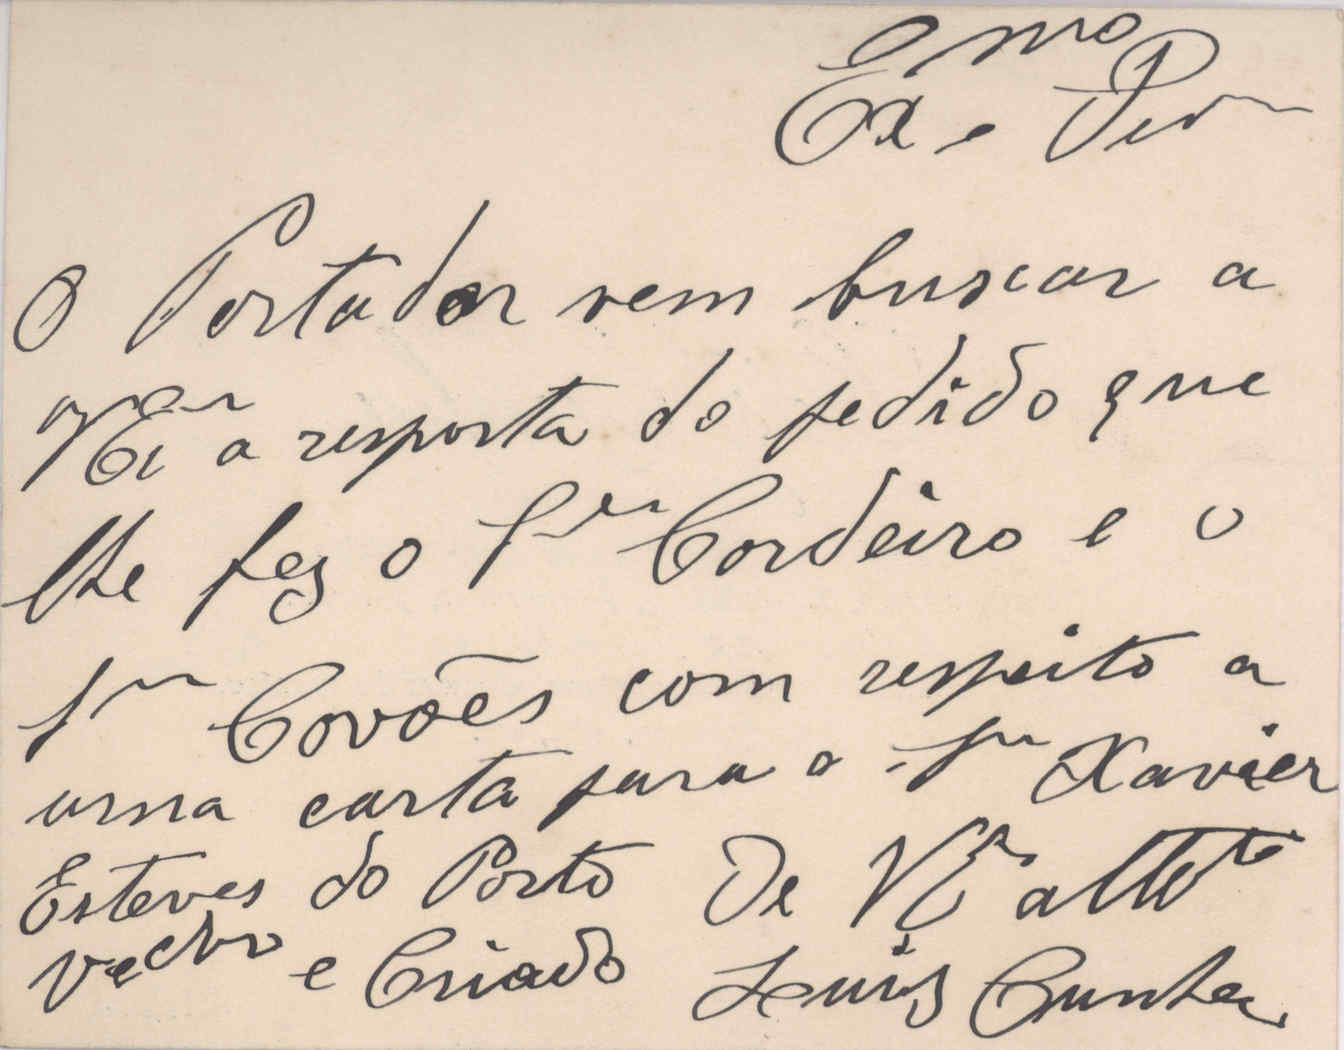 Exmo e Revmo
O Portador vem buscar a
V Exa a resposta do pedido que
lhe fez o Snr Cordeiro e o
Snr Covões com respeito a
uma carta para o Snr Xavier
Esteves do Porto De V Exa atto
e Criado Luis Cunha